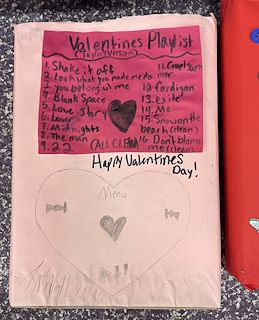 Valentines Playlist
(Taylors Version)
1. Shake it off
2. Look what you made me do
3. you belong w/ me
4. Blank Space
5. Love story
6. Lover
7. Midnights
8. The man
9. 22
(ALL CLEAN)
11. Cruel Sum-
mer
12. Cardigan
13. exile
14. Me
15. Snow on the
beach (clean)
16. Don't blame
me (clean)
Happy Valentines
Day!
Menu